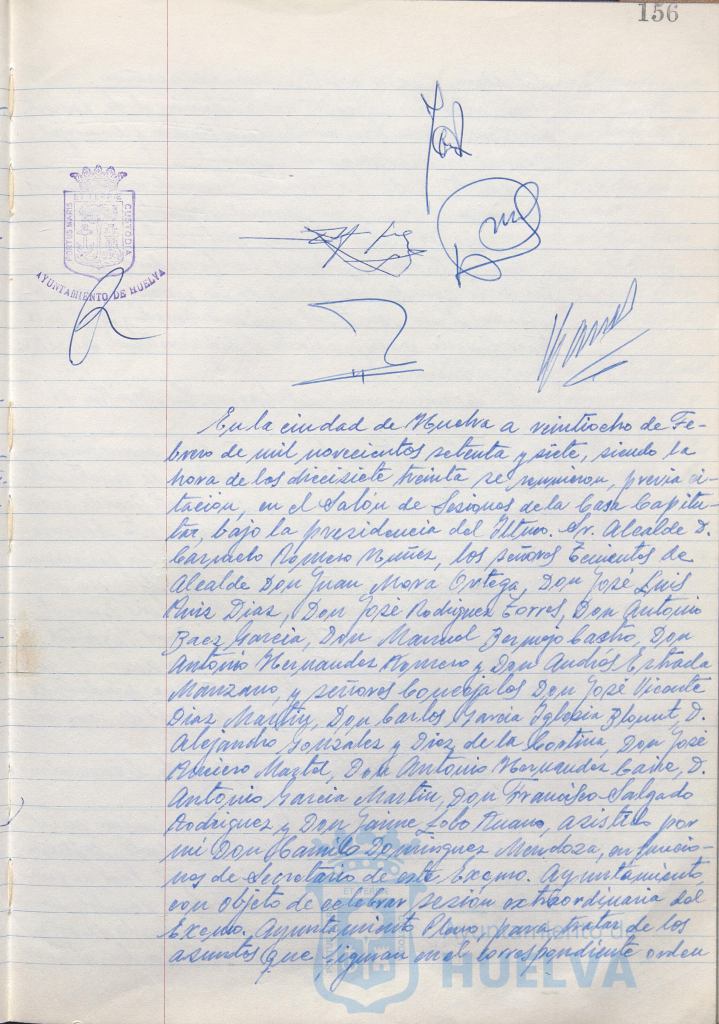 156
ET TERRE
PORTUS MARIS
CUSTODIA
AYUNTAMIENTO DE HUELVA
En la ciudad de Huelva a veintiocho de Fe-
brero de mil novecientos setenta y siete, siendo la
hora de las diecisiete treinta se reunieron, previa ci-
tación, en el Salón de Sesiones de la Casa Capitu-
lar, bajo la presidencia del Iltmo. Sr. Alcalde D.
Carmelo Romero Nuñez, los señores Tenientes de
Alcalde Don Juan Mora Ortega, Don José Luis
Ruiz Diaz, Don José Rodriguez Torres, Don Antonio
Baez Garcia, Don Manuel Bermejo Castro, Don
Antonio Hernandez Romero y Don Andrés Estrada
Manzano, y señores Concejales Don José Vicente
Diaz Martin, Don Carlos Garcia Iglesia Blomut, D.
Alejandro Gonzalez y Diez de la Cortina, Don José
Maztel, Don Antonio Hernandez Caire, D.
Antonio Garcia Martin, Don Francisco Salgado
Rodriguez y Don Jaime Lobo Ruano, asistidos por
mi Don Camilo Dominguez Mendoza, en funcio-
nes de Secretario de este Excmo. Ayuntamiento,
con objeto de celebrar sesión extraordinaria del
Excmo. Ayuntamiento Pleno, para tratar de los
asuntos que figuran en el correspondiente orden
HUELVA